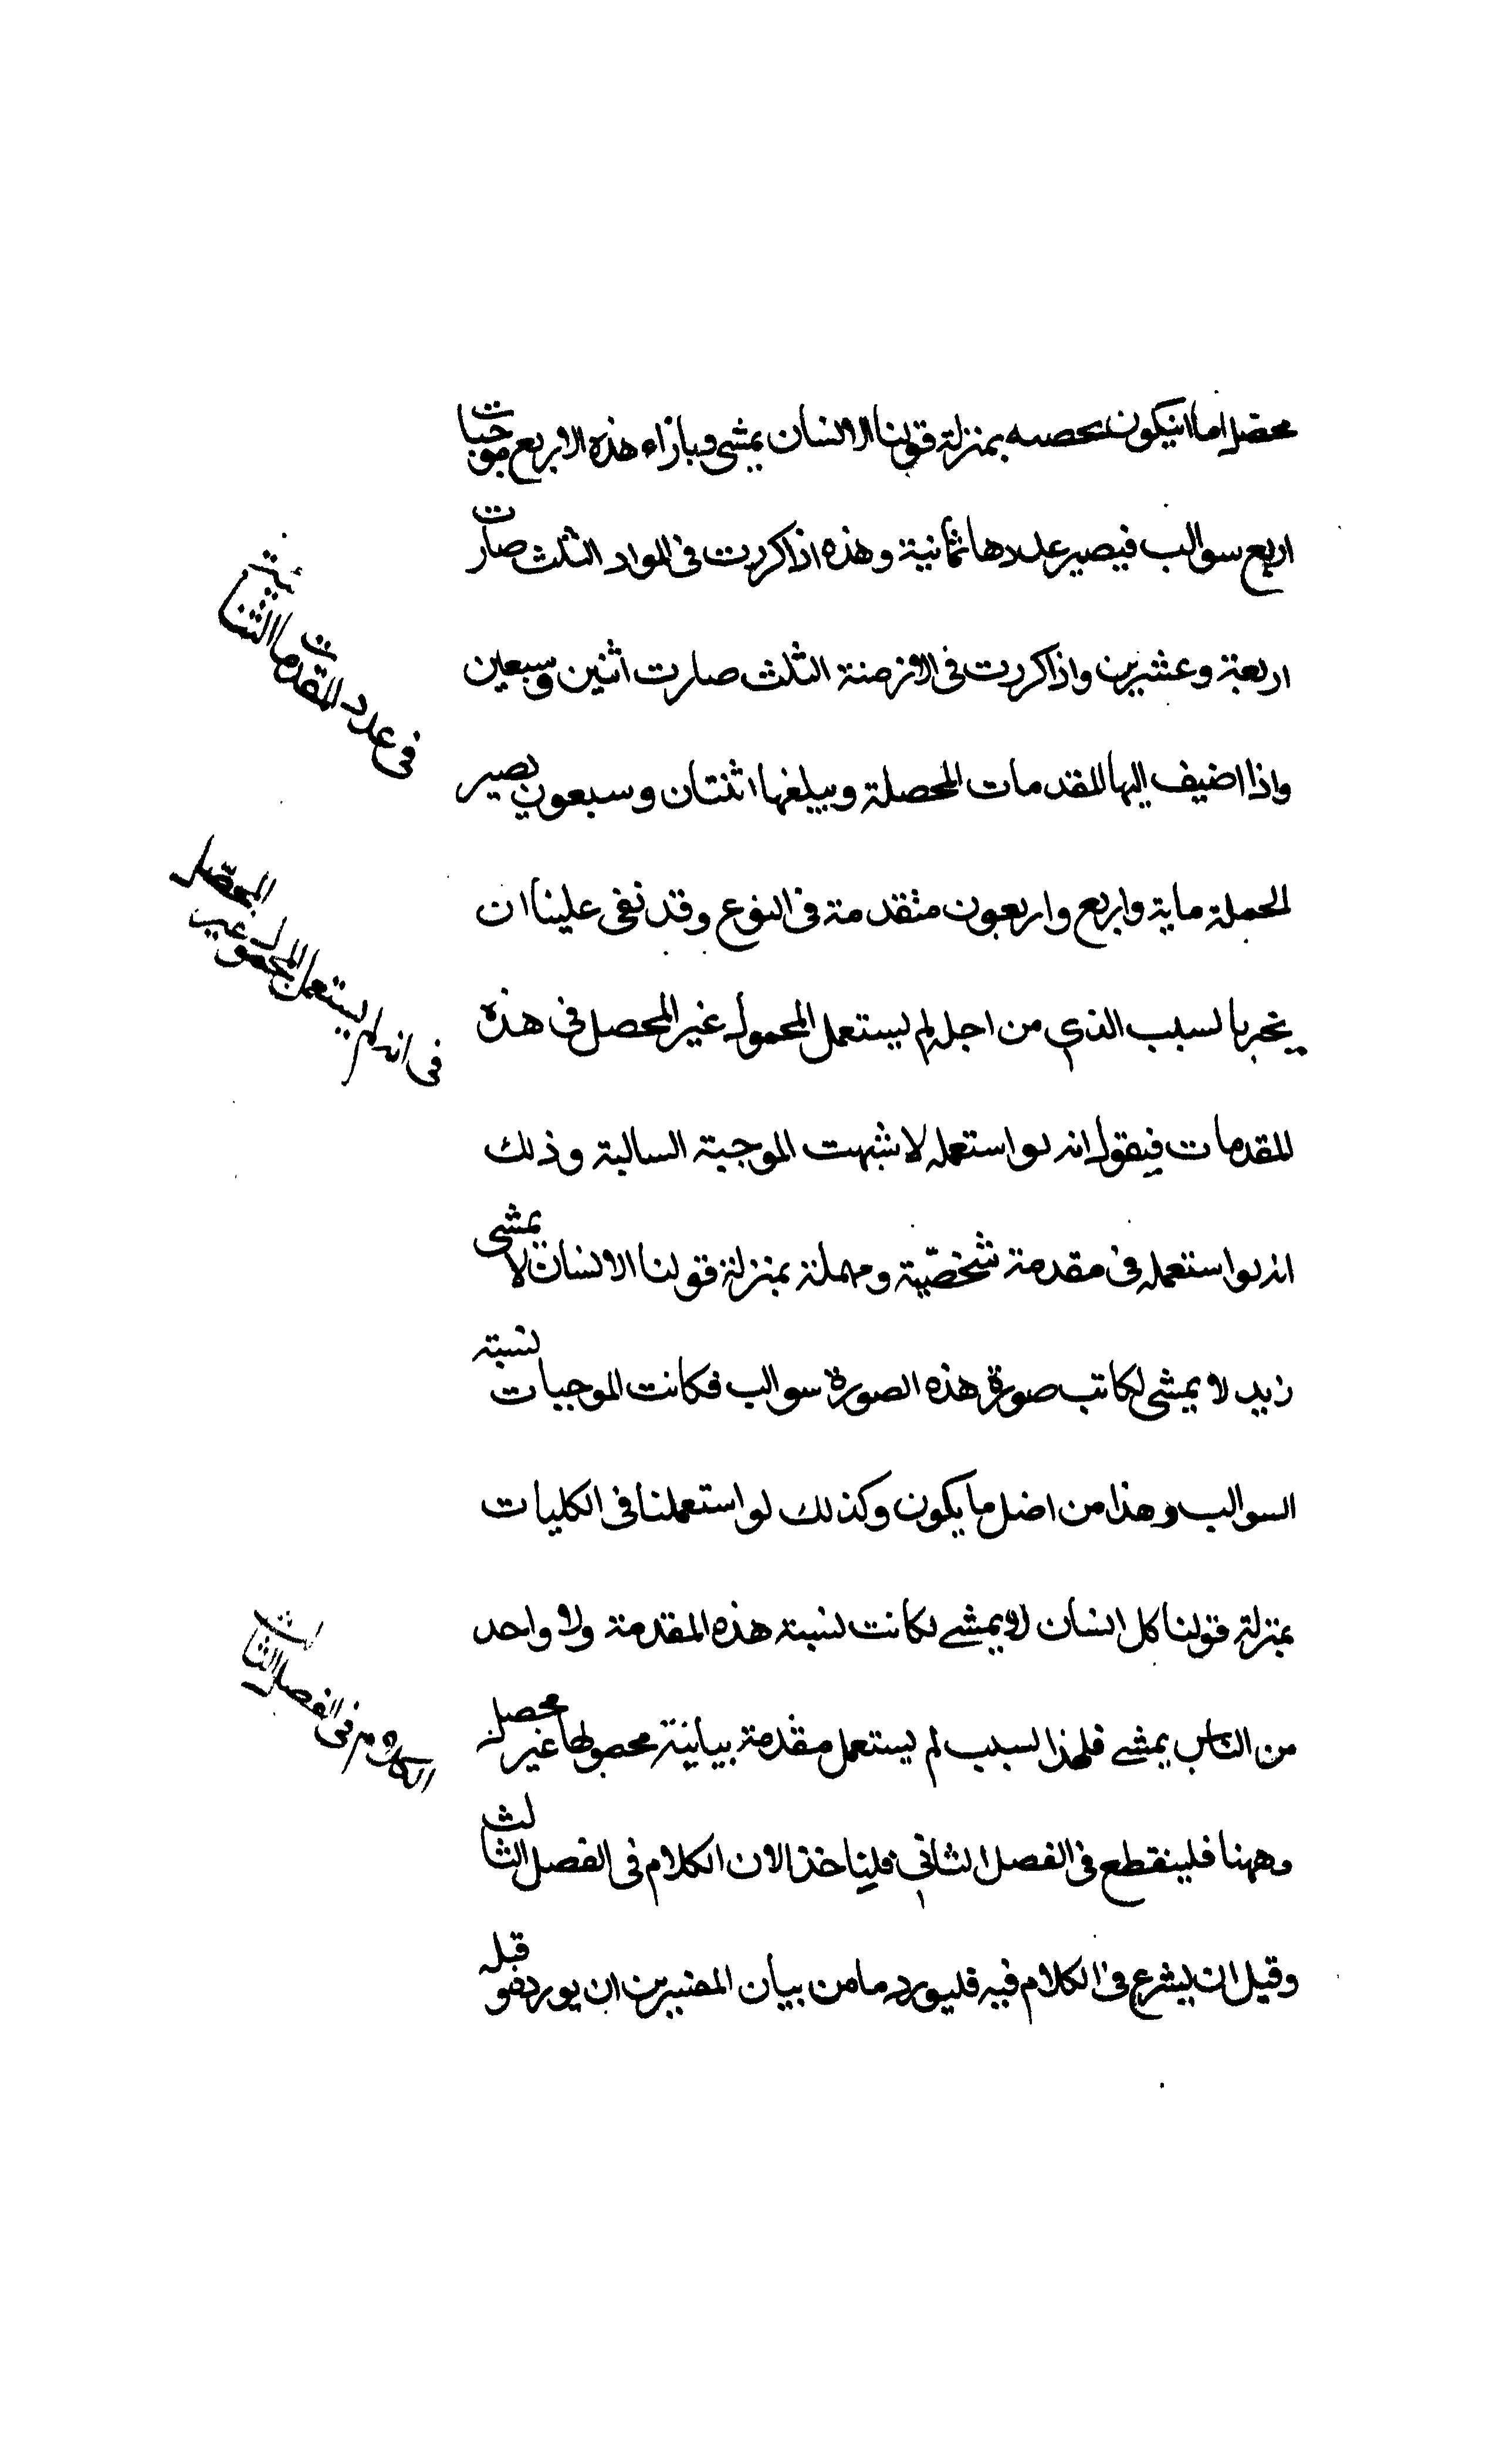 محصل اما ان يكون بحصه بمنزلة قولنا الانسان يمشى وبازاء هذه الاربع موجبات
اربع سوالب فيصير عددها ثمانية وهذه اذا كررت فى المواد الثلث صارت
اربعة وعشرين واذا كررت فى الازمنة الثلث صارت اثنين وسبعين
واذا اضيف اليها المقدمات المحصلة ومبلغها اثنتان وسبعون يصير
الجملة ماية واربع واربعون متقدمة فى النوع وقد نفى علينا ان
يخبر بالسبب الذى من اجله لم يستعمل المحمول غير المحصل فى هذه
المقدمات فيقول انه لو استعمله لاشبهت الموجبة السالبة وذلك
انه لو استعمله فى مقدمة شخصّية ومهملة بمنزلة قولنا الانسان لا يمشى
زيد لا يمشى لكانت صورة هذه الصورة سوالب فكانت الموجبات نسبة
السوالب وهذا من اضل ما يكون وكذلك لو استعملنا فى الكليات
بمنزلة قولنا كل انسان لا يمشى لكانت نسبة هذه المقدمة ولا واحد
من الناس يمشى فلهذا السبب لم يستعمل مقدمة بيانية محمولها غير محصل
وههنا فلينقطع فى الفصل الثانى فلناخذ الان الكلام فى الفصل الثالث
وقيل ان يشرع فى الكلام فيه فليورد ما من بيان المفسرين ان يوردوه قبله
فى عدد المقدمات الثنائية
فى انه لم يستعمل المحمول غير المحصل
الكلام فى الفصل الثالث